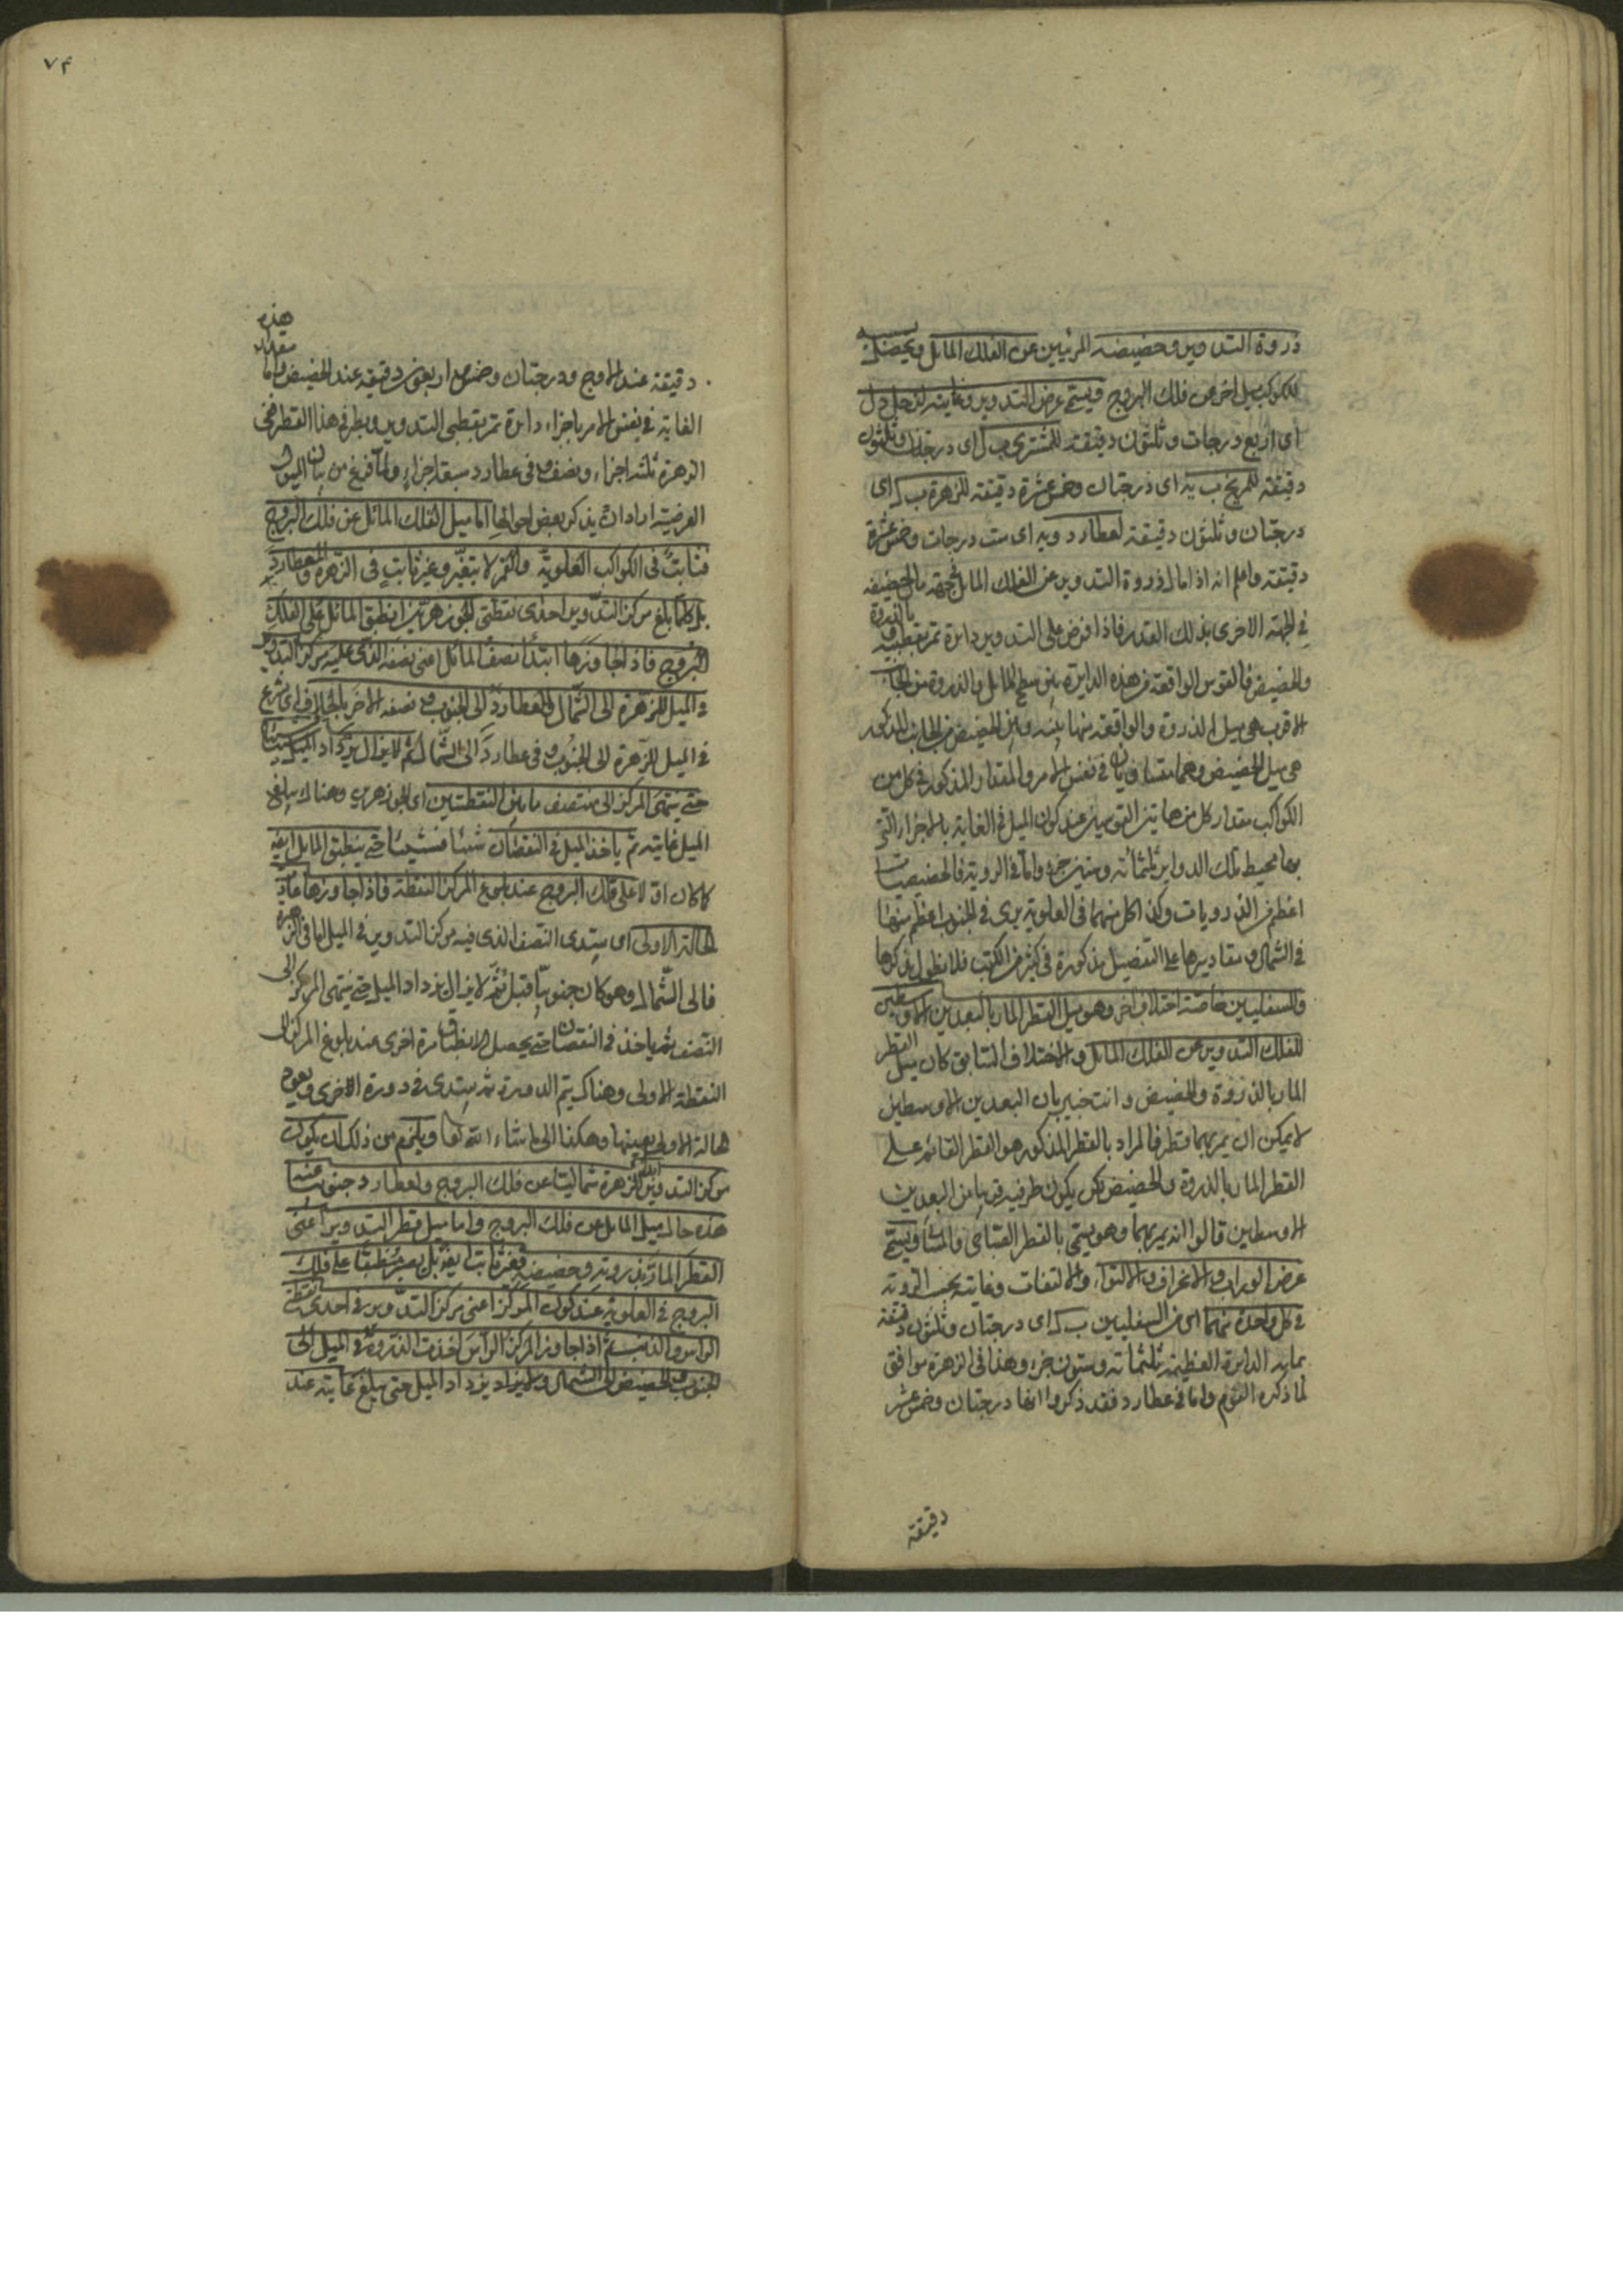 ذروة التدوير وحضيضه المرئيين عن الفلك المائل ويحصل بسببه
للكوكب ميل اخر عن فلك البروج ويسمى عرض التدوير وغايته لزحل د ل
اى اربع درجات وثلثون دقيقة للمشترى ب ل اى درجتان وثلثون
دقيقة للمريخ ب يه اى درجتان وخمس عشرة دقيقة للزهرة ب ل اى
درجتان وثلثون دقيقة لعطارد و يه اى ست درجات وخمس عشرة
دقيقة واعلم انه اذا مال ذروة التدوير عن الفلك المائل الى جهة مال الحضيض
فى الجهة الاخرى بذلك القدر فاذا فرض على التدوير دائرة تمر بقطبيه وبالذروة
والحضيض فالقوس الواقعة من هذه الدايرة بين سطح المائل والذروة من الجانب
الاقرب هى ميل الذروة والواقعة منها بينه وبين الحضيض من الجانب المذكور
هى ميل الحضيض وهما متساويان فى نفس الامر والمقدار المذكور فى كل من
الكواكب مقدار كل من هاتين القوسين عند كون الميل فى الغاية بالاجزاء التى
بها محيط تلك الدواير ثلثمائة وستين جزء واما فى الروية فالحضيضات
اعظم من الذرويات وكذا كل منهما فى العلوية يرى فى الجنوب اعظم منها
فى الشمال ومقاديرها على التفصيل مذكورة فى كثير من الكتب فلا نطول بذكرها
وللسفليين خاصة اختلاف اخر وهو ميل القطر المار بالبعدين الاوسطين
للفلك التدوير عن الفلك المائل والاختلاف السابق كان ميل القطر
المار بالذروة والحضيض وانت خبير بان البعدين الاوسطين
لا يمكن ان يمر بهما قطر فالمراد بالقطر المذكور هو القطر القائم على
القطر المار بالذروة والحضيض لكن يكون طرفيه قريبا من البعدين
الاوسطين قالوا انه يمر بهما وهو يسمى بالقطر الصباحى والمسائى ويسمى
عرض الوراب والانحراف والالتواء والالتفات وغايته بحسب الروية
فى كل واحدة منهما اى من السفليين ب ل اى درجتان وثلثون دقيقة
مما به الدايرة العظيمة ثلثمائة وستون جزء وهذا فى الزهرة موافق
لما ذكره القوم واما فى عطارد فقد ذكروا انها درجتان وخمس عشر
دقيقة
٧٤
دقيقة عند الاوج ودرجتان وخمس واربعون دقيقة عند الحضيض واما مقدار هذه
الغاية فى نفس الامر باجزاء دائرة تمر بقطبى التدوير وبطرفى هذا القطر ففى
الزهرة ثلثة اجزاء ونصف وفى عطارد سبعة اجزاء ولما فرغ من بيان الميول
العرضية اراد ان يذكر بعض احوالها اما ميل الفلك المائل عن فلك البروج
فثابت فى الكواكب العلوية والقمر لا يتغير وغير ثابت فى الزهرة والعطارد
بل كلما بلغ مركز التدوير احدى نقطتى الجوزهرين انطبق المائل على الفلك
البروج فاذا جاوزها ابتدأ نصف المائل اعنى نصفه الذى عليه مركز التدوير
فى الميل للزهرة الى الشمال ولعطارد الى الجنوب ونصفه الاخر بالخلاف اى يشرع
فى الميل للزهرة الى الجنوب وفى عطارد الى الشمال ثم لا يزال يزداد الميل شيئا فشيئا
حتى ينتهى المركز الى منتصف ما بين النقطتين اى الجوزهرين وهناك يبلغ
الميل غايته ثم ياخذ الميل فى النقصان شيئا فشيئا حتى ينطبق المائل ايضا
كما كان اولا على فلك البروج عند بلوغ المركز النقطة فاذا جاوزها عاد
الحالة الاولى اى يبتدى النصف الذى فيه مركز التدوير فى الميل اما فى الزهرة
فالى الشمال وهو كان جنوبيا قبل ثم لا يزال يزداد الميل حتى ينتهى المركز الى
النصف ثم ياخذ فى النقصان حتى يحصل الانطباق مرة اخرى عند بلوغ المركز الى
النقطة الاولى وهناك يتم الدورة ثم يبتدى فى دورة الاخرى ويعود
الحالة الاولى بعينها وهكذا الى ما شاء الله تعالى ويلزم من ذلك ان يكون
مركز التدوير للزهرة ابدا شماليا عن فلك البروج ولعطارد جنوبيا عنه
هذه حال ميل المائل عن فلك البروج واما ميل قطر التدوير اعنى
القطر المار بذروته وحضيضه فغير ثابت ايضا بل يصير منطبقا على فلك
البروج فى العلوية عند كون المركز اعنى مركز التدوير فى احدى نقطتى
الراس والذنب ثم اذا جاوز المركز الراس اخذت الذروة فى الميل الى
الجنوب والحضيض الى الشمال ولا يزال يزداد الميل حتى يبلغ غايته عند